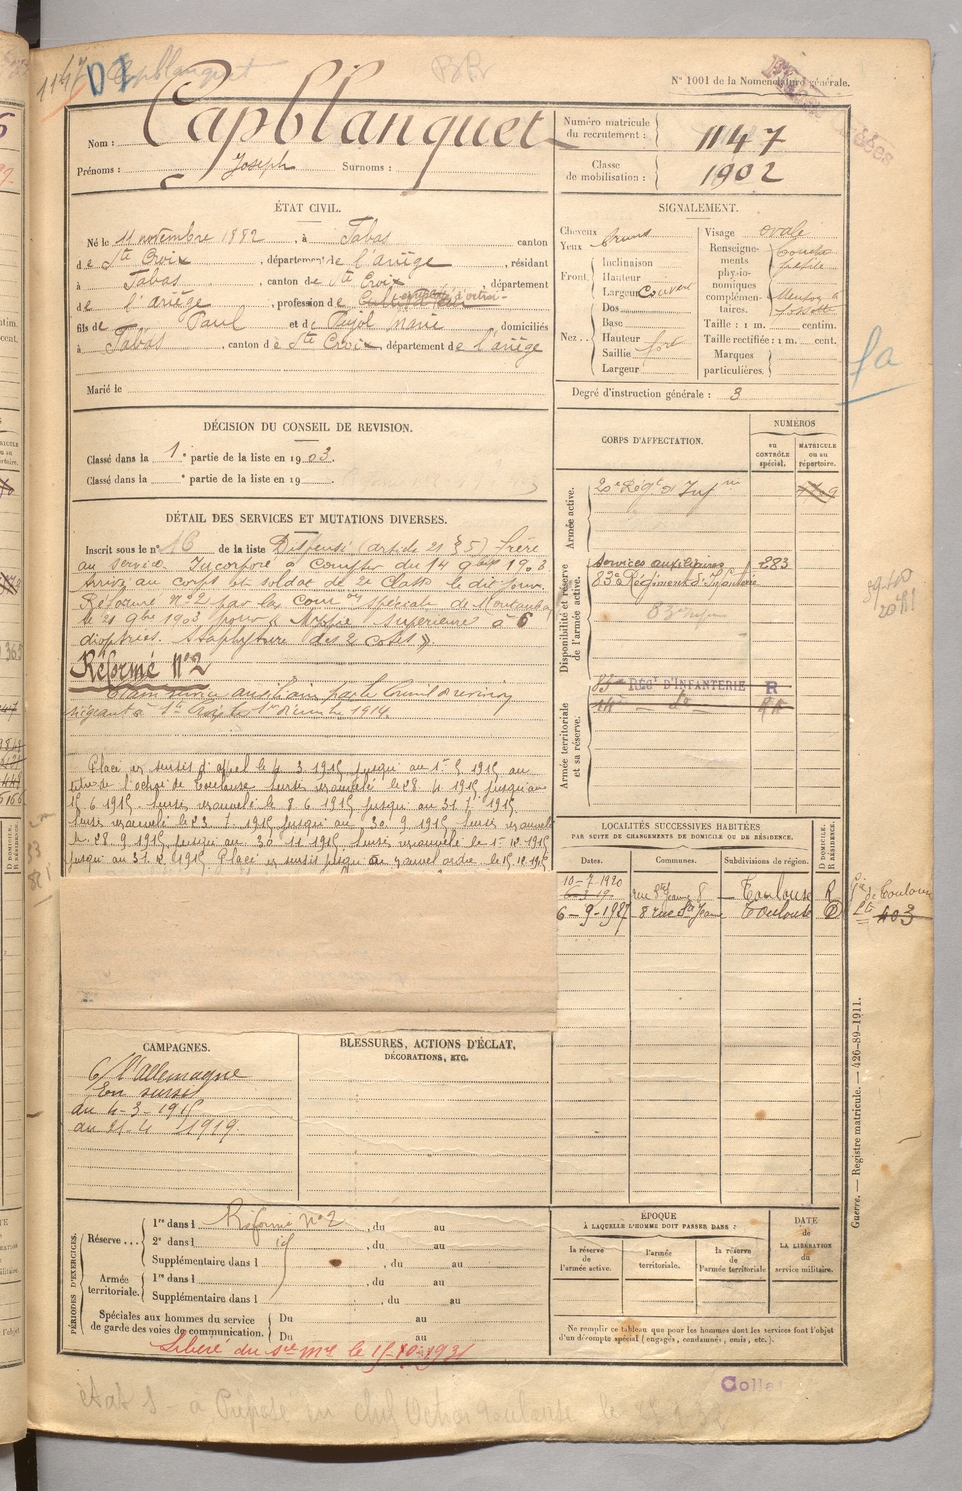 1147 D1 Capblanquet
N° 1001 de la Nomenclature générale.
Nom : Capblanquet
Prénoms : Joseph Surnoms :
Numéro matricule du recrutement : 1147
Classe de mobilisation : 1902
ÉTAT CIVIL.
Né le 11 novembre 1882, à Tabas canton
de Ste Croix, département de l'ariège, résidant
à Tabas, canton de Ste Croix, département
de l'ariège, profession de
fils de Paul et de Pujol Marie domiciliés
à Tabas, canton de Ste Croix, département de l'ariège
Marié le
SIGNALEMENT.
Cheveux
Yeux
Front. Inclinaison
Hauteur
Largeur Couvert
Nez Dos
Base
Hauteur
Saillie fort
Largeur
Visage ovale
Renseignements physionomiques complémentaires. Menton à fossette
Taille : 1 m. centim.
Taille rectifiée : 1 m. cent.
Marques particulières.
Degré d'instruction générale : 3
DÉCISION DU CONSEIL DE REVISION.
Classé dans la 1e partie de la liste en 1903.
Classé dans la e partie de la liste en 19
DÉTAIL DES SERVICES ET MUTATIONS DIVERSES.
Inscrit sous le n° 16 de la liste Dispensé (article 21 § 5) frère
au service. Incorporé à compter du 14 9bre 1903
arrivé au corps et soldat de 2e classe le dit jour.
Réformé N°2 par la Comon spéciale de Montauban
le 21 9bre 1903 pour « Myopie Supérieure à 6
dioptries. Staphylome des 2 côtés »
Réformé N°2
Classé service auxiliaire par le Conseil de revision
siégeant à le 1er décembre 1914.
Placé en sursis d'appel le 4 3 1915 jusqu'au 1er 5 1915 au
titre de l'octroi de Toulouse sursis renouvelé le 28 4 1915 jusqu'au
15 6 1915. Sursis renouvelé le 8 6 1915 jusqu'au 31 7 1915
Sursis renouvelé le 23 7 1915 jusqu'au 30 9 1915 Sursis renouvelé
le 28 9 1915 jusqu'au 30 11 1915 Sursis renouvelé le 1er 12 1915
jusqu'au 31 12 1915 Placé en sursis jusqu'à nouvel ordre le 15 12 1915
CORPS D'AFFECTATION.
NUMÉROS
au CONTRÔLE spécial.
MATRICULE ou au répertoire.
Armée active.
20e Régt d'Infrie
Disponibilité et réserve de l'armée active.
services auxiliaires 283
83e Régiment d'Infanterie
Armée territoriale et sa réserve.
83me RÉGt D'INFANTERIE R
LOCALITÉS SUCCESSIVES HABITÉES
PAR SUITE DE CHANGEMENTS DE DOMICILE OU DE RÉSIDENCE.
Dates. Communes. Subdivisions de région. D DOMICILE. R RÉSIDENCE.
10-7-1920 rue Ste Jeanne 8 Toulouse R
6-9-1927 8 rue Ste Jeanne Toulouse D
CAMPAGNES.
C/ l'Allemagne
En sursis
du 4-3-1915
au 21-4 1919.
BLESSURES, ACTIONS D'ÉCLAT,
DÉCORATIONS, ETC.
PÉRIODES D'EXERCICES.
Réserve... 1re dans l Réformé N°2, du au
2e dans l id, du au
Supplémentaire dans l, du au
Armée territoriale. 1re dans l, du au
Supplémentaire dans l, du au
Spéciales aux hommes du service de garde des voies de communication. Du au
Du au
Libéré du sce Mre le 15-10-1931
ÉPOQUE
À LAQUELLE L'HOMME DOIT PASSER DANS :
la réserve de l'armée active.
l'armée territoriale.
la réserve de l'armée territoriale
DATE DE LA LIBÉRATION du service militaire.
Ne remplir ce tableau que pour les hommes dont les services font l'objet
d'un décompte spécial (engagés, condamnés, omis, etc.).
Guerre. — Registre matricule. — 426-89-1911.